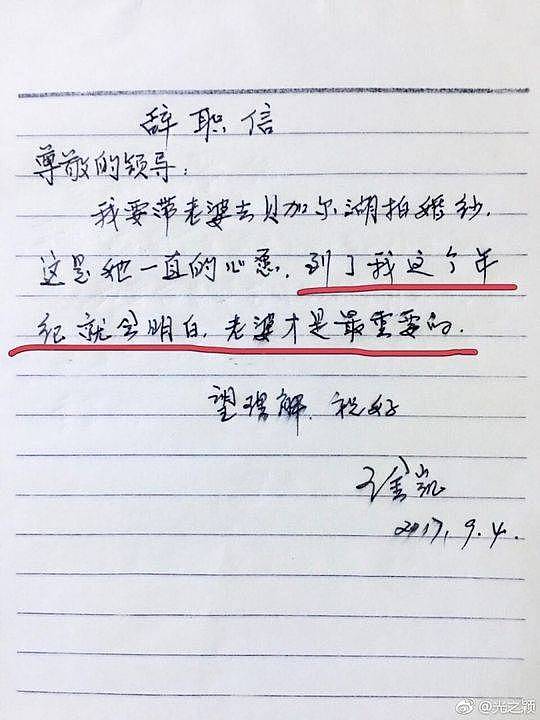 辞职信
尊敬的领导：
我要带老婆去贝加尔湖拍婚纱，
这是她一直的心愿，到了我这个年
纪就会明白，老婆才是最重要的．
望理解．祝好
2017.9.4.
@光之颖